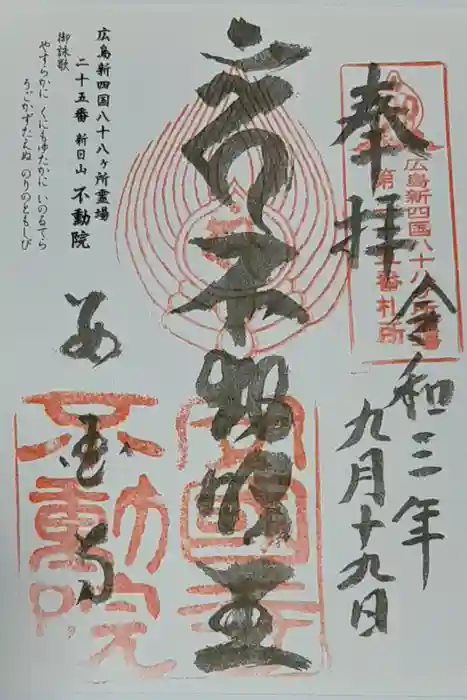 奉拝
令和三年
九月十九日
不動明王
広島新四国八十八ヶ所霊場
二十五番 新日山 不動院
御詠歌
やすらかに くにもゆたかに いのるてら
うごかずたえぬ のりのともしび
安国寺
安国寺
不動院